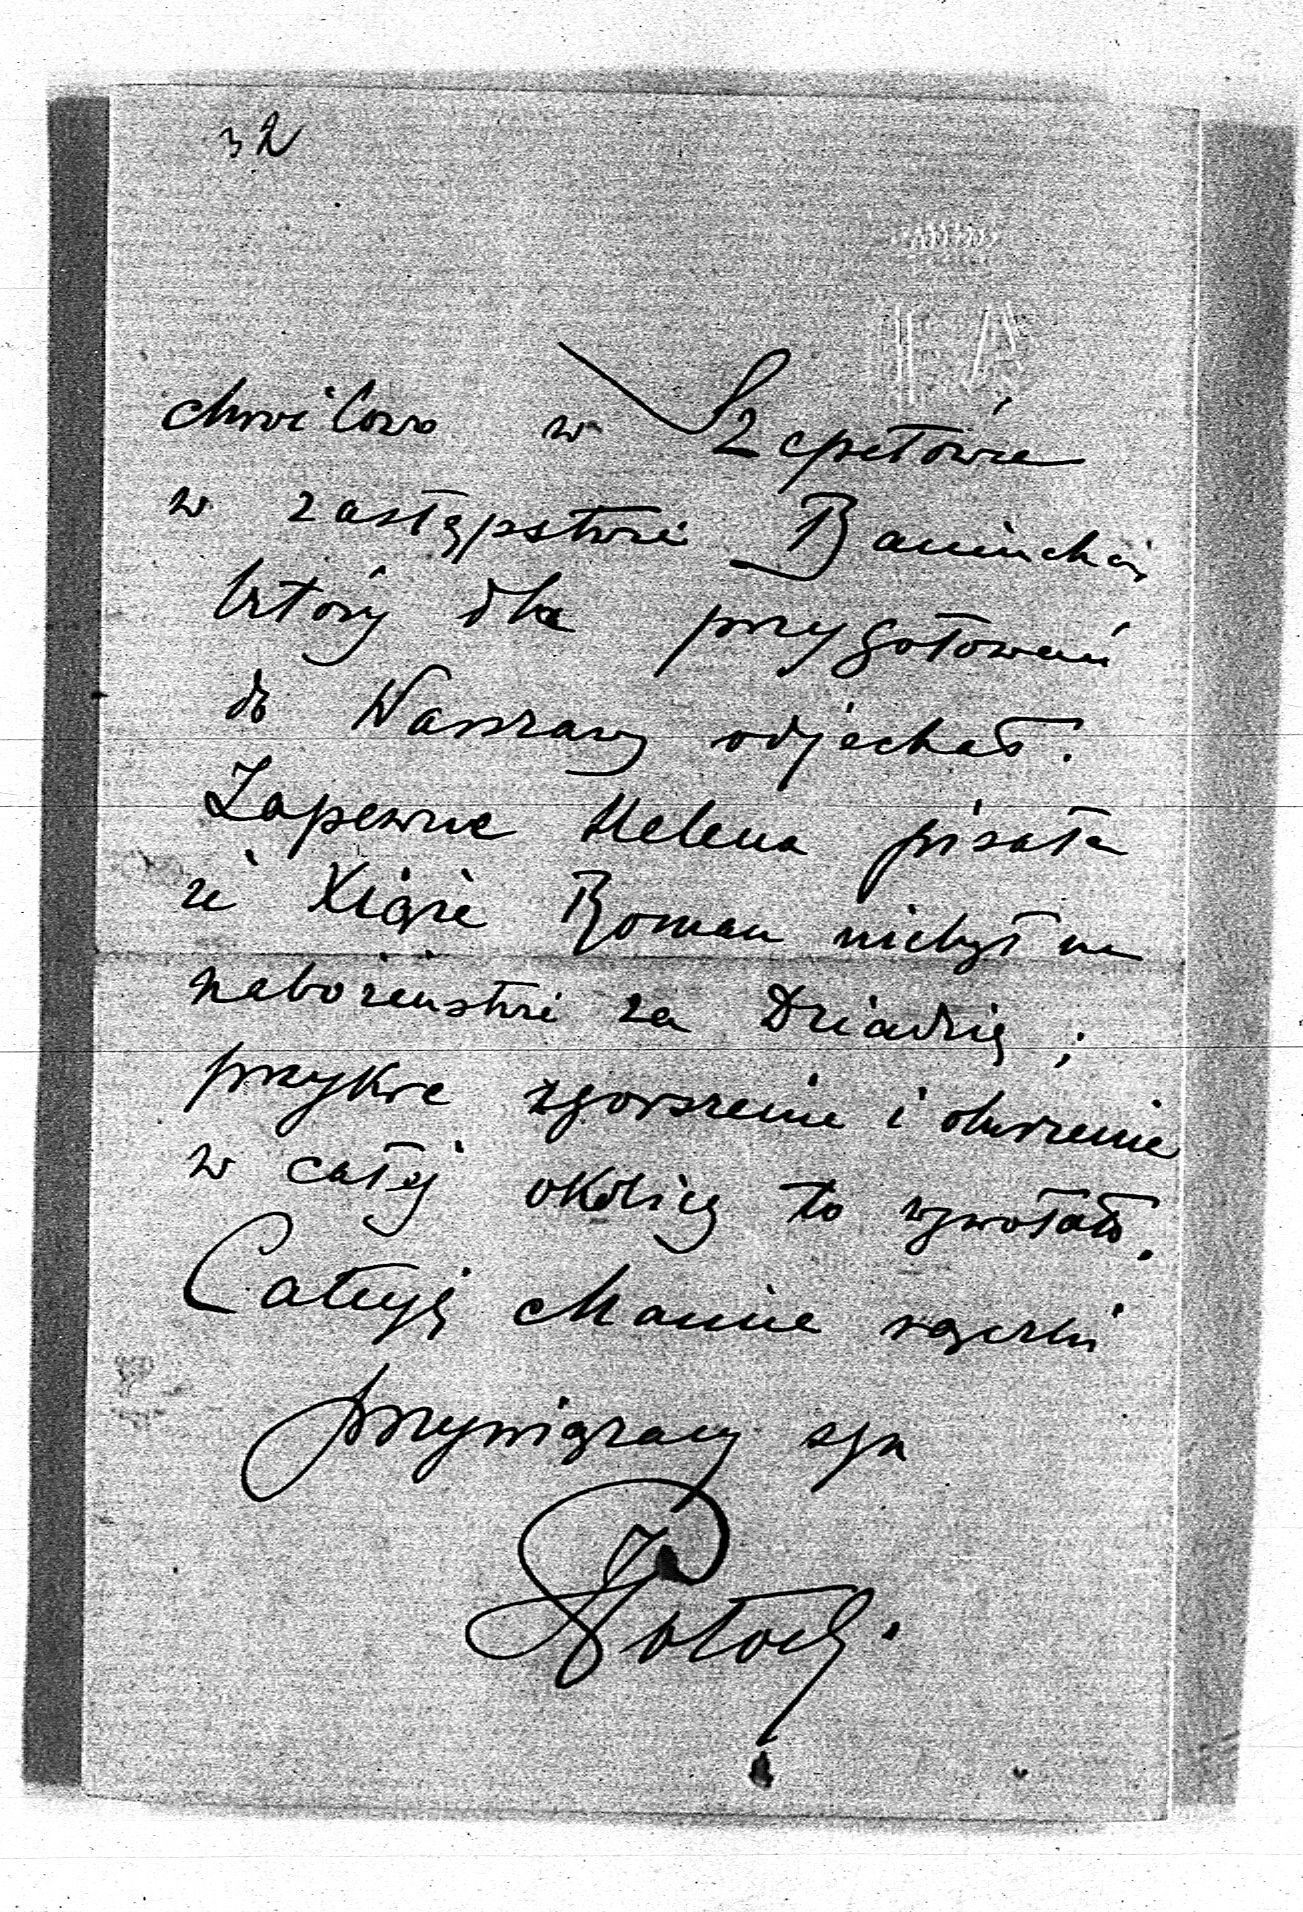 32
chwilowo w Szepetówce
w zastępstwie
który dla przygotowań
do Warszawy odjechał.
Zapewne Helena pisała
że Xiąże Roman niebył na
nabożeństwie za Dziadzię;
przykre zgorszenie i oburzenie
w całej okolicy to wywołało.
Całuję Mamie rączki
przywiązany syn
JPotocki.